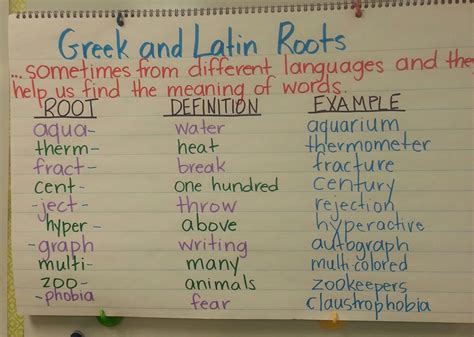 Greek and Latin Roots
...sometimes from different languages and the
help us find the meaning of words.
ROOT DEFINITION EXAMPLE
aqua- water aquarium
therm- heat thermometer
fract- break fracture
cent- one hundred century
-ject- throw rejection
hyper- above hyperactive
-graph writing autograph
multi- many multicolored
zoo- animals zookeepers
-phobia fear claustrophobia